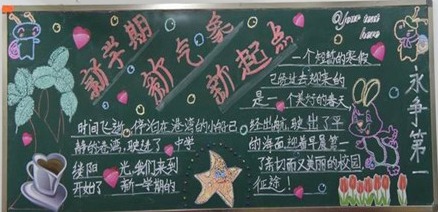 新学期
新气象
新起点
Your text
here
永争第一
一个短暂的寒假
已经过去迎来的
是一个美好的春天
时间飞逝,停泊在港湾的小船已
静的港湾,驶进了
缕阳 光,我们来到
开始了 新一学期的
经出航,驶出了平
的海面,迎着早晨第一
了崭新而又美丽的校园
征途!